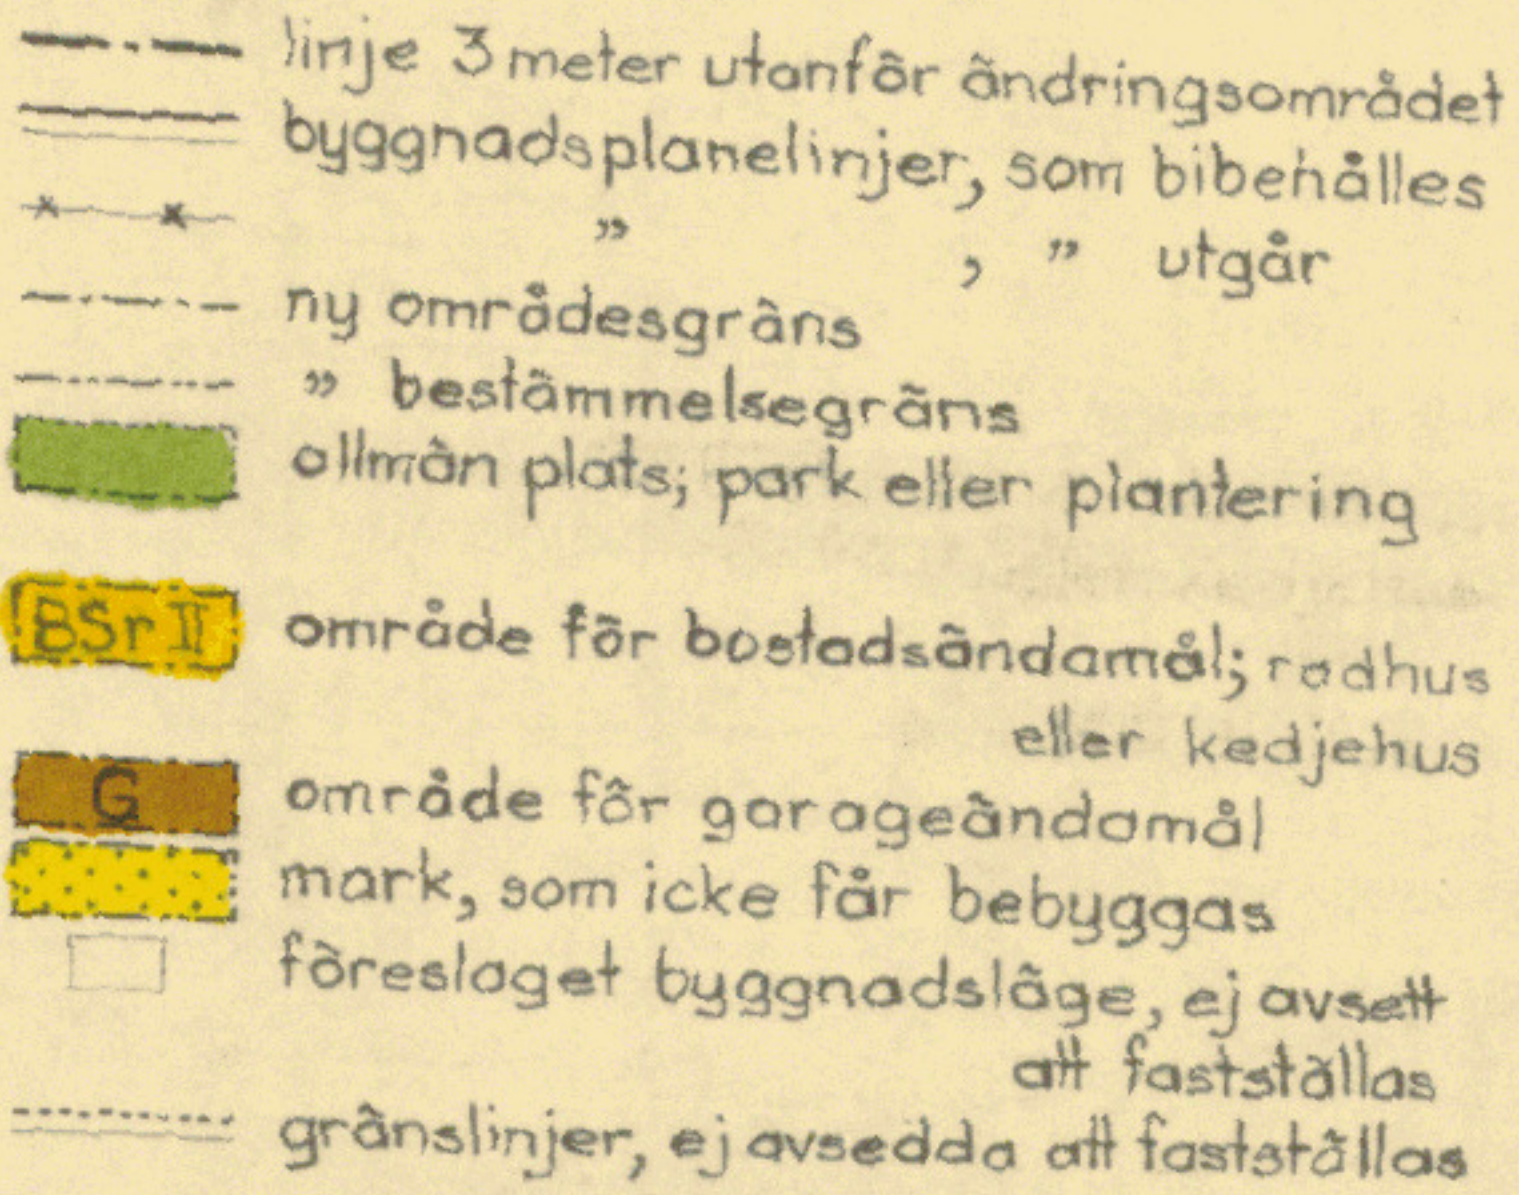 linje 3 meter utanför ändringsområdet
byggnadsplanelinjer, som bibehålles
” , ” utgår
ny områdesgräns
” bestämmelsegräns
allmän plats; park eller plantering
BSr II område för bostadsändamål; radhus
eller kedjehus
G område för garageändamål
mark, som icke får bebyggas
föreslaget byggnadsläge, ej avsett
att fastställas
gränslinjer, ej avsedda att fastställas